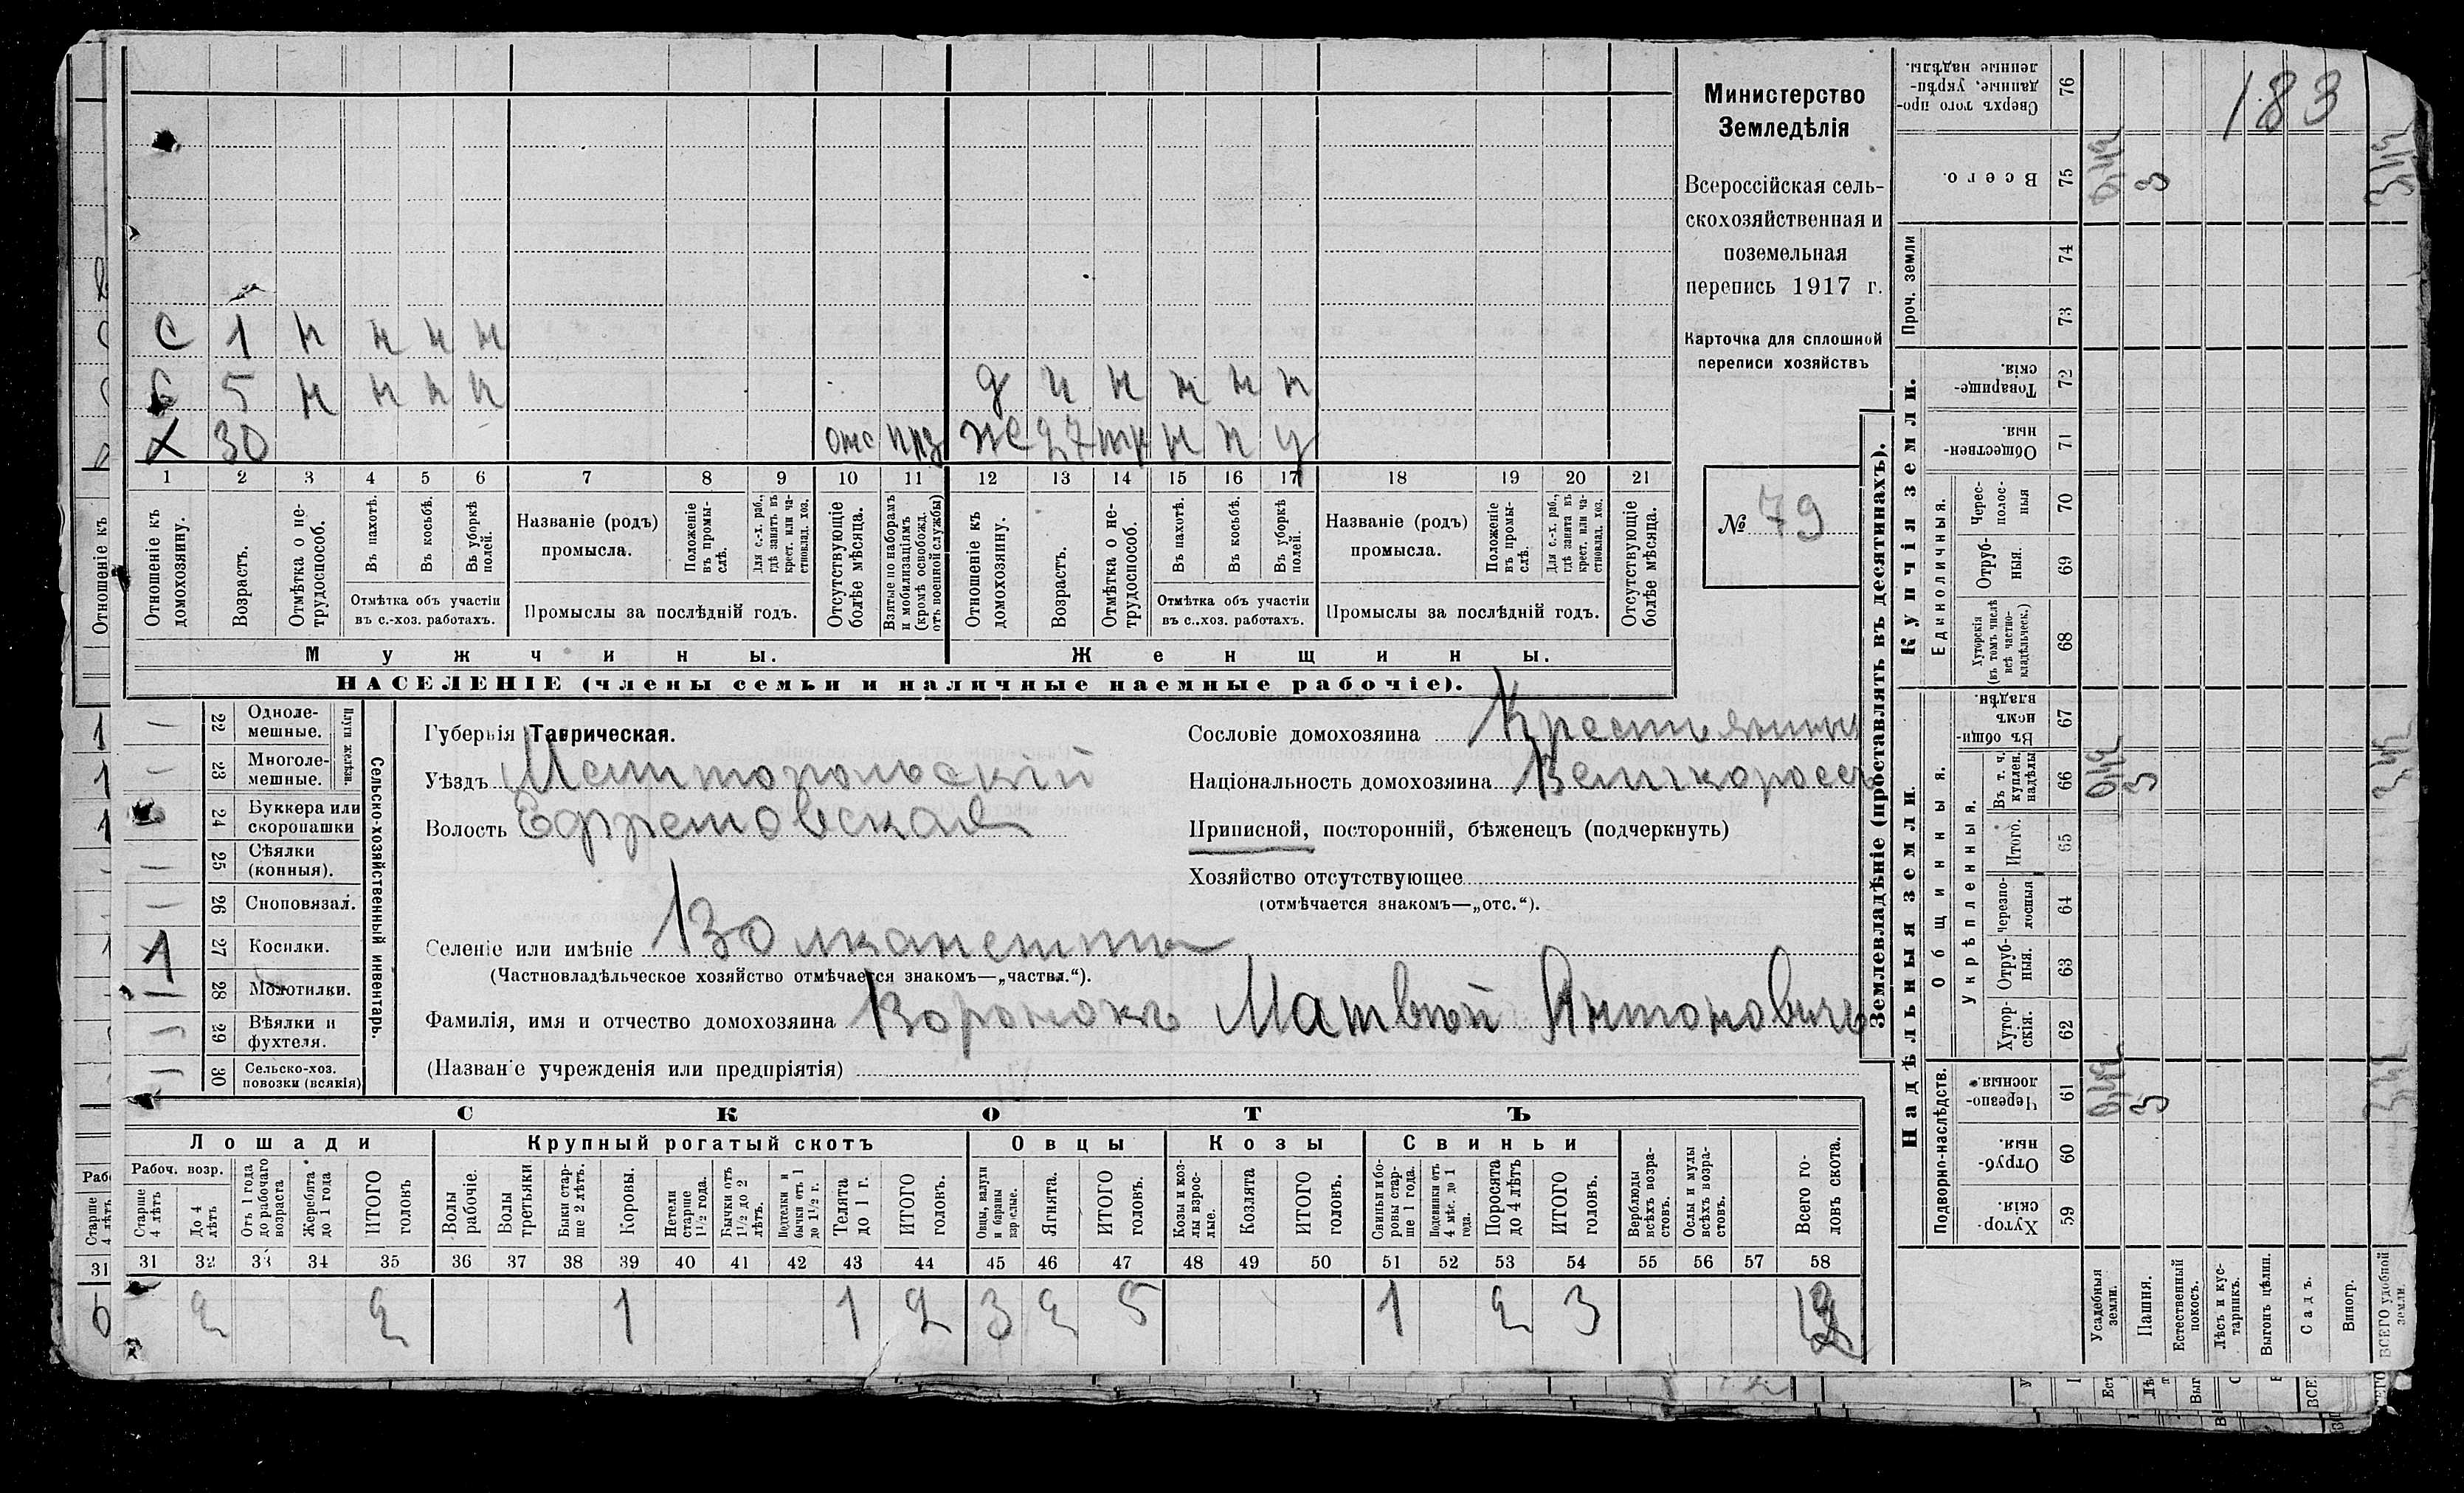 183
Министерство
Земледѣлія
Всероссійская сель-
скохозяйственная и
поземельная
перепись 1917 г.
Карточка для сплошной
переписи хозяйствъ
№ 79
С 1 н н н н
С 5 н н н н
Х 30 отс
д 4 н н н н
ж 27 н н у
1 2 3 4 5 6 7 8 9 10 11 12 13 14 15 16 17 18 19 20 21
Отношеніе къ домохозяину.
Возрастъ.
Отмѣтка о не-
трудоспособ.
Въ пахотѣ.
Въ косьбѣ.
Въ уборкѣ полей.
Отмѣтка объ участіи
въ с.-хоз. работахъ.
Названіе (родъ)
промысла.
Положеніе въ промы-
слѣ.
Для с.-х. раб., гдѣ занятъ въ крест. или ча-
стновлад. хоз.
Промыслы за послѣдній годъ.
Отсутствующіе болѣе мѣсяца.
Взятые по наборамъ и мобилизаціямъ (кромѣ освобожд. отъ военной службы)
Отношеніе къ домохозяину.
Возрастъ.
Отмѣтка о не-
трудоспособ.
Въ пахотѣ.
Въ косьбѣ.
Въ уборкѣ полей.
Отмѣтка объ участіи
въ с..хоз. работахъ.
Названіе (родъ)
промысла.
Положеніе въ промы-
слѣ.
Для с.-х. раб., гдѣ занята въ крест. или ча-
стновлад. хоз.
Промыслы за послѣдній годъ.
Отсутствующіе болѣе мѣсяца.
Мужчины.
Женщины.
НАСЕЛЕНІЕ (члены семьи и наличные наемные рабочіе).
Губернія Таврическая.
Уѣздъ Мелитопольскій
Волость Ефремовская
Селеніе или имѣніе Волканешты
(Частновладѣльческое хозяйство отмѣчается знакомъ—„частвл.“).
Фамилія, имя и отчество домохозяина Воронокъ Матвѣй Антоновичъ
(Названіе учрежденія или предпріятія)
Сословіе домохозяина Крестьянинъ
Національность домохозяина Великороссъ
Приписной, посторонній, бѣженецъ (подчеркнуть)
Хозяйство отсутствующее
(отмѣчается знакомъ—„отс.“).
Сельско-хозяйственный инвентарь.
Плуги желѣзн.
22 Одноле-
мешные. —
23 Многоле-
мешные. —
24 Буккера или
скоропашки
25 Сѣялки
(конныя). —
26 Сноповязал. —
27 Косилки. 1
28 Молотилки. —
29 Вѣялки и
фухтеля. —
30 Сельско-хоз.
повозки (всякія) —
СКОТЪ
Лошади
Крупный рогатый скотъ
Овцы
Козы
Свиньи
Рабоч. возр.
Старше 4 лѣтъ
До 4 лѣтъ
Отъ 1 года до рабочаго возраста
Жеребята до 1 года
ИТОГО головъ
Волы рабочіе.
Волы третьяки.
Быки стар-
ше 2 лѣтъ.
Коровы.
Нетели старше 1½ года.
Бычки отъ 1½ до 2 лѣтъ.
Подтелки и бычки отъ 1 до 1½ г.
Телята до 1 г.
ИТОГО головъ.
Овцы, валухи и бараны взрослые.
Ягнята.
ИТОГО головъ.
Козы и коз-
лы взрос-
лые.
Козлята
ИТОГО головъ.
Свиньи и бо-
ровы стар-
ше 1 года.
Подсвинки отъ 4 мѣс. до 1 года.
Поросята до 4 лѣтъ
ИТОГО головъ.
Верблюды всѣхъ возра-
стовъ.
Ослы и мулы всѣхъ возра-
стовъ.
Всего го-
ловъ скота.
31 32 33 34 35 36 37 38 39 40 41 42 43 44 45 46 47 48 49 50 51 52 53 54 55 56 57 58
2 2 1 1 2 3 2 5 1 2 3 12
Землевладѣніе (проставлять въ десятинахъ).
Надѣльныя земли.
Купчія земли.
Проч. земли
Подворно-наслѣдств.
Общинныя.
Укрѣпленныя.
Единоличныя.
Сверхъ того про-
данные, укрѣп-
ленные надѣлы. 76
Всего. 75 3
74
73
Товарище-
скія. 72
Обществен-
ныя. 71
Черес-
полос-
ныя 70
Отруб-
ныя. 69
Хуторскія
(въ томъ числѣ
всѣ частно-
владѣльческ.) 68
Въ общи-
номъ
владѣн. 67
Въ т. ч.
куплен.
надѣлы 66 3
Итого. 65
Черезпо-
лосныя 64
Отруб-
ныя. 63
Хутор-
скія. 62
Черезпо-
лосныя. 61 3
Отруб-
ныя. 60
Хутор-
скія. 59
Усадебныя земли.
Пашня.
Естественный покосъ.
Лѣсъ и кус-
тарникъ.
Выгонъ цѣлин.
Садъ.
Виногр.
ВСЕГО удобной земли.